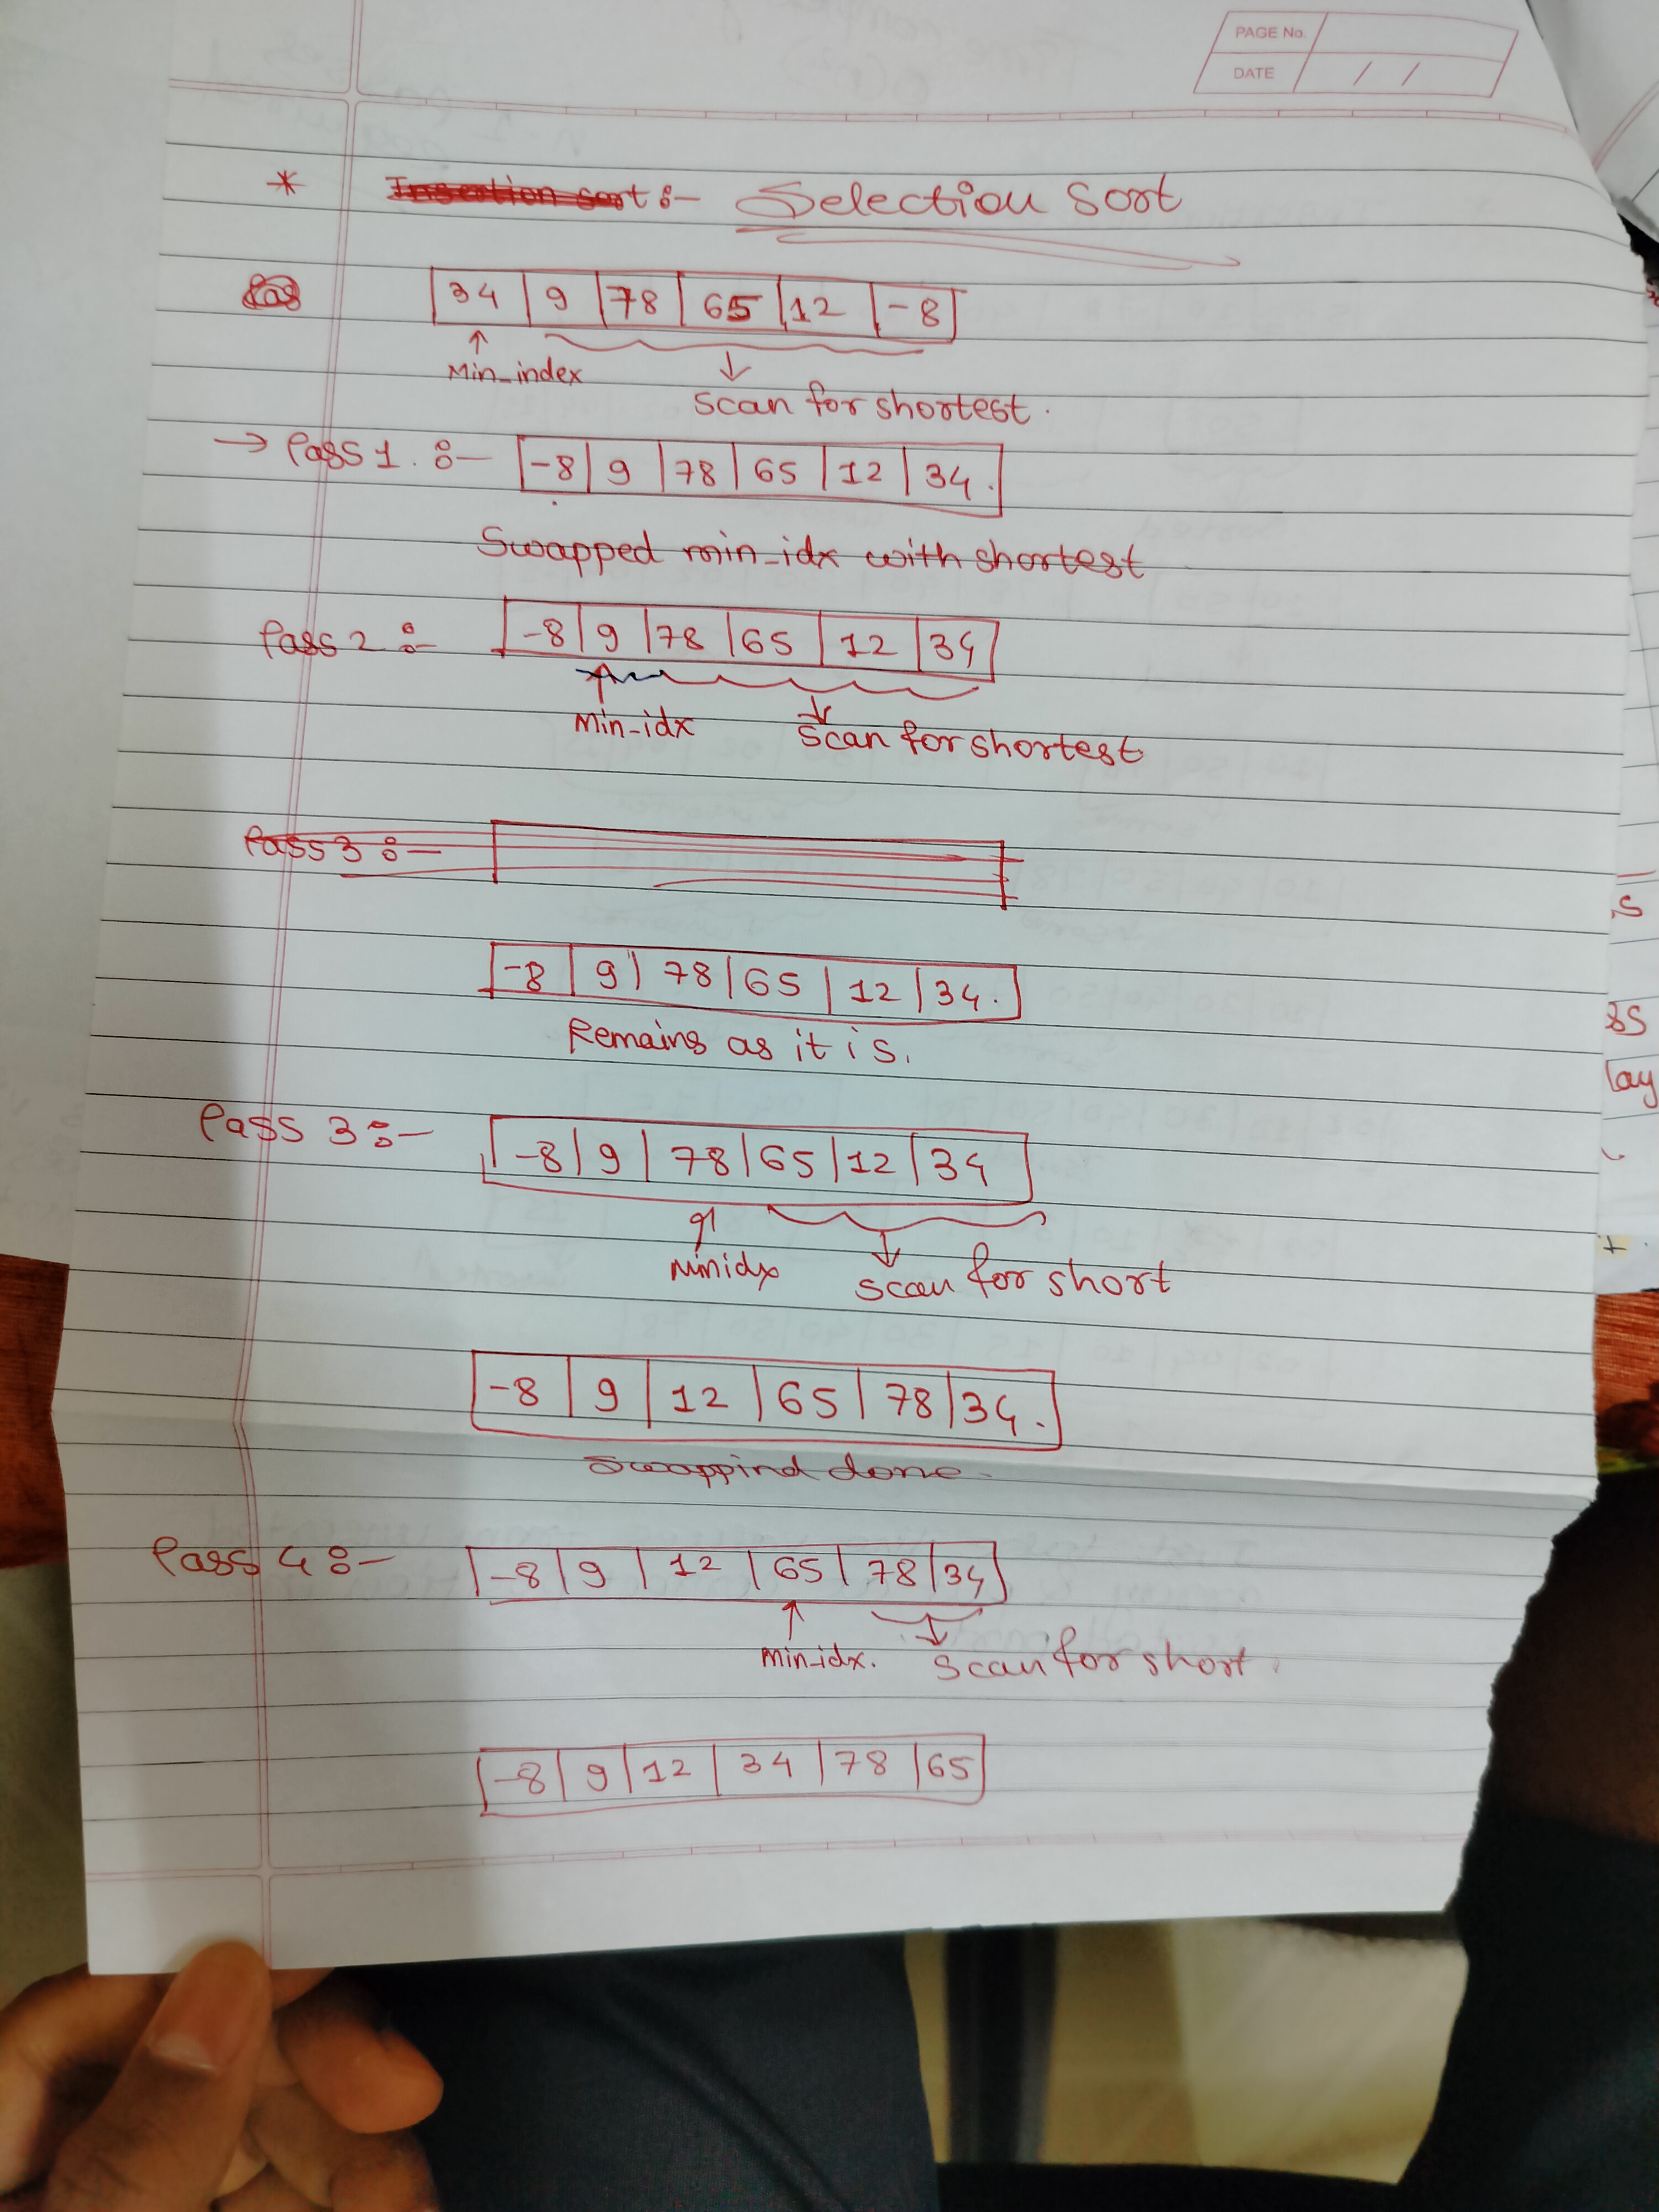 PAGE No.
DATE / /
* Insertion sort :- Selection Sort
34 | 9 | 78 | 65 | 12 | -8
↑
Min_index
↓
Scan for shortest.
→ Pass 1. :- -8 | 9 | 78 | 65 | 12 | 34.
Swapped min_idx with shortest
Pass 2 :- -8 | 9 | 78 | 65 | 12 | 34
Min_idx Scan for shortest
Pass 3 :-
-8 | 9 | 78 | 65 | 12 | 34.
Remains as it is.
Pass 3 :- -8 | 9 | 78 | 65 | 12 | 34
minidx scan for short
-8 | 9 | 12 | 65 | 78 | 34.
Swappind done.
Pass 4 :- -8 | 9 | 12 | 65 | 78 | 34
min-idx. Scan for short.
-8 | 9 | 12 | 34 | 78 | 65